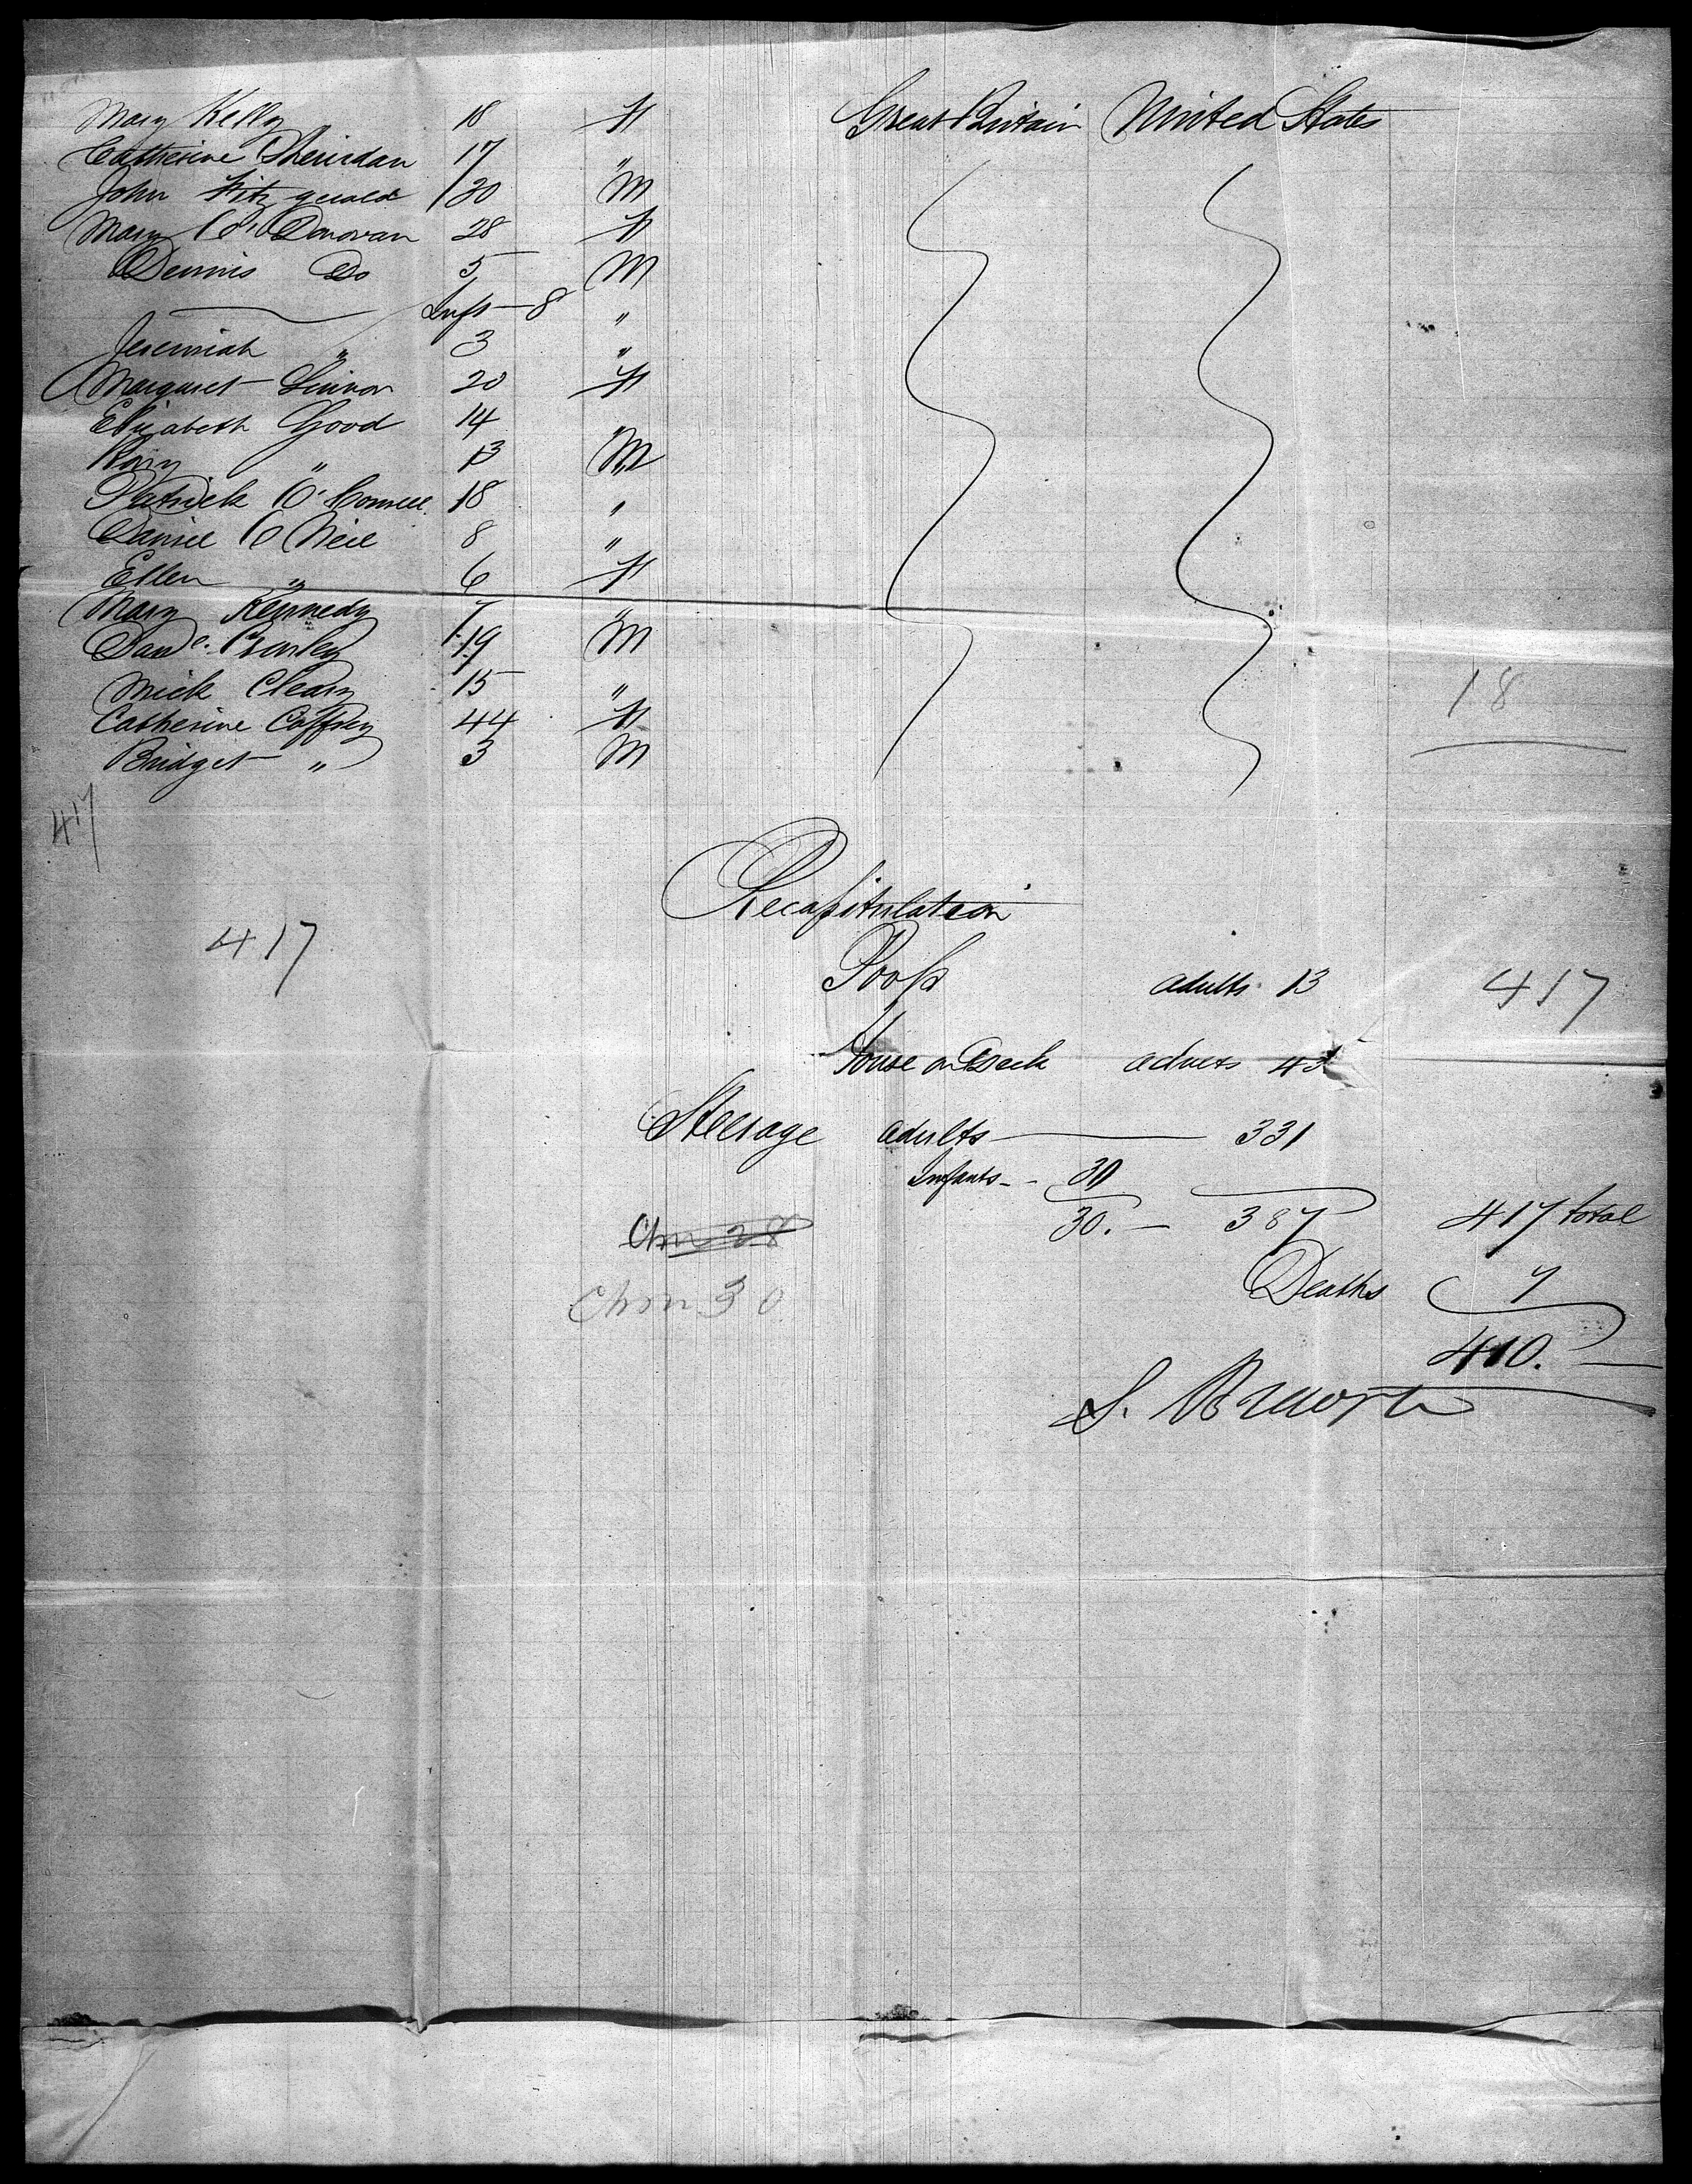 Mary Kelly 18 F Great Britain United States
Catherine Sheridan 17 "
John Fitzgerald 20 M
Mary O'Donovan 28 F
Dennis Do 5 M
Inft - 8 "
Jeremiah " 3 "
Margaret 20 F
Elizabeth Good 14 "
" 13 M
Patrick O'Connell 18 "
Daniel O Neil 8 "
Ellen " 6 F
Mary Kennedy 7 "
Danl. Crowley 19 M
Mick Cleary 15 "
18
Catherine Caffrey 44 F
Bridget " 3 M
417
Recapitulation
417
Poop adults 13 417
House on Deck adults 43
Steerage adults 331
Infants - - 30
30. - 387 417 total
Chn 28
Deaths 7
Chn 30
410.
S.